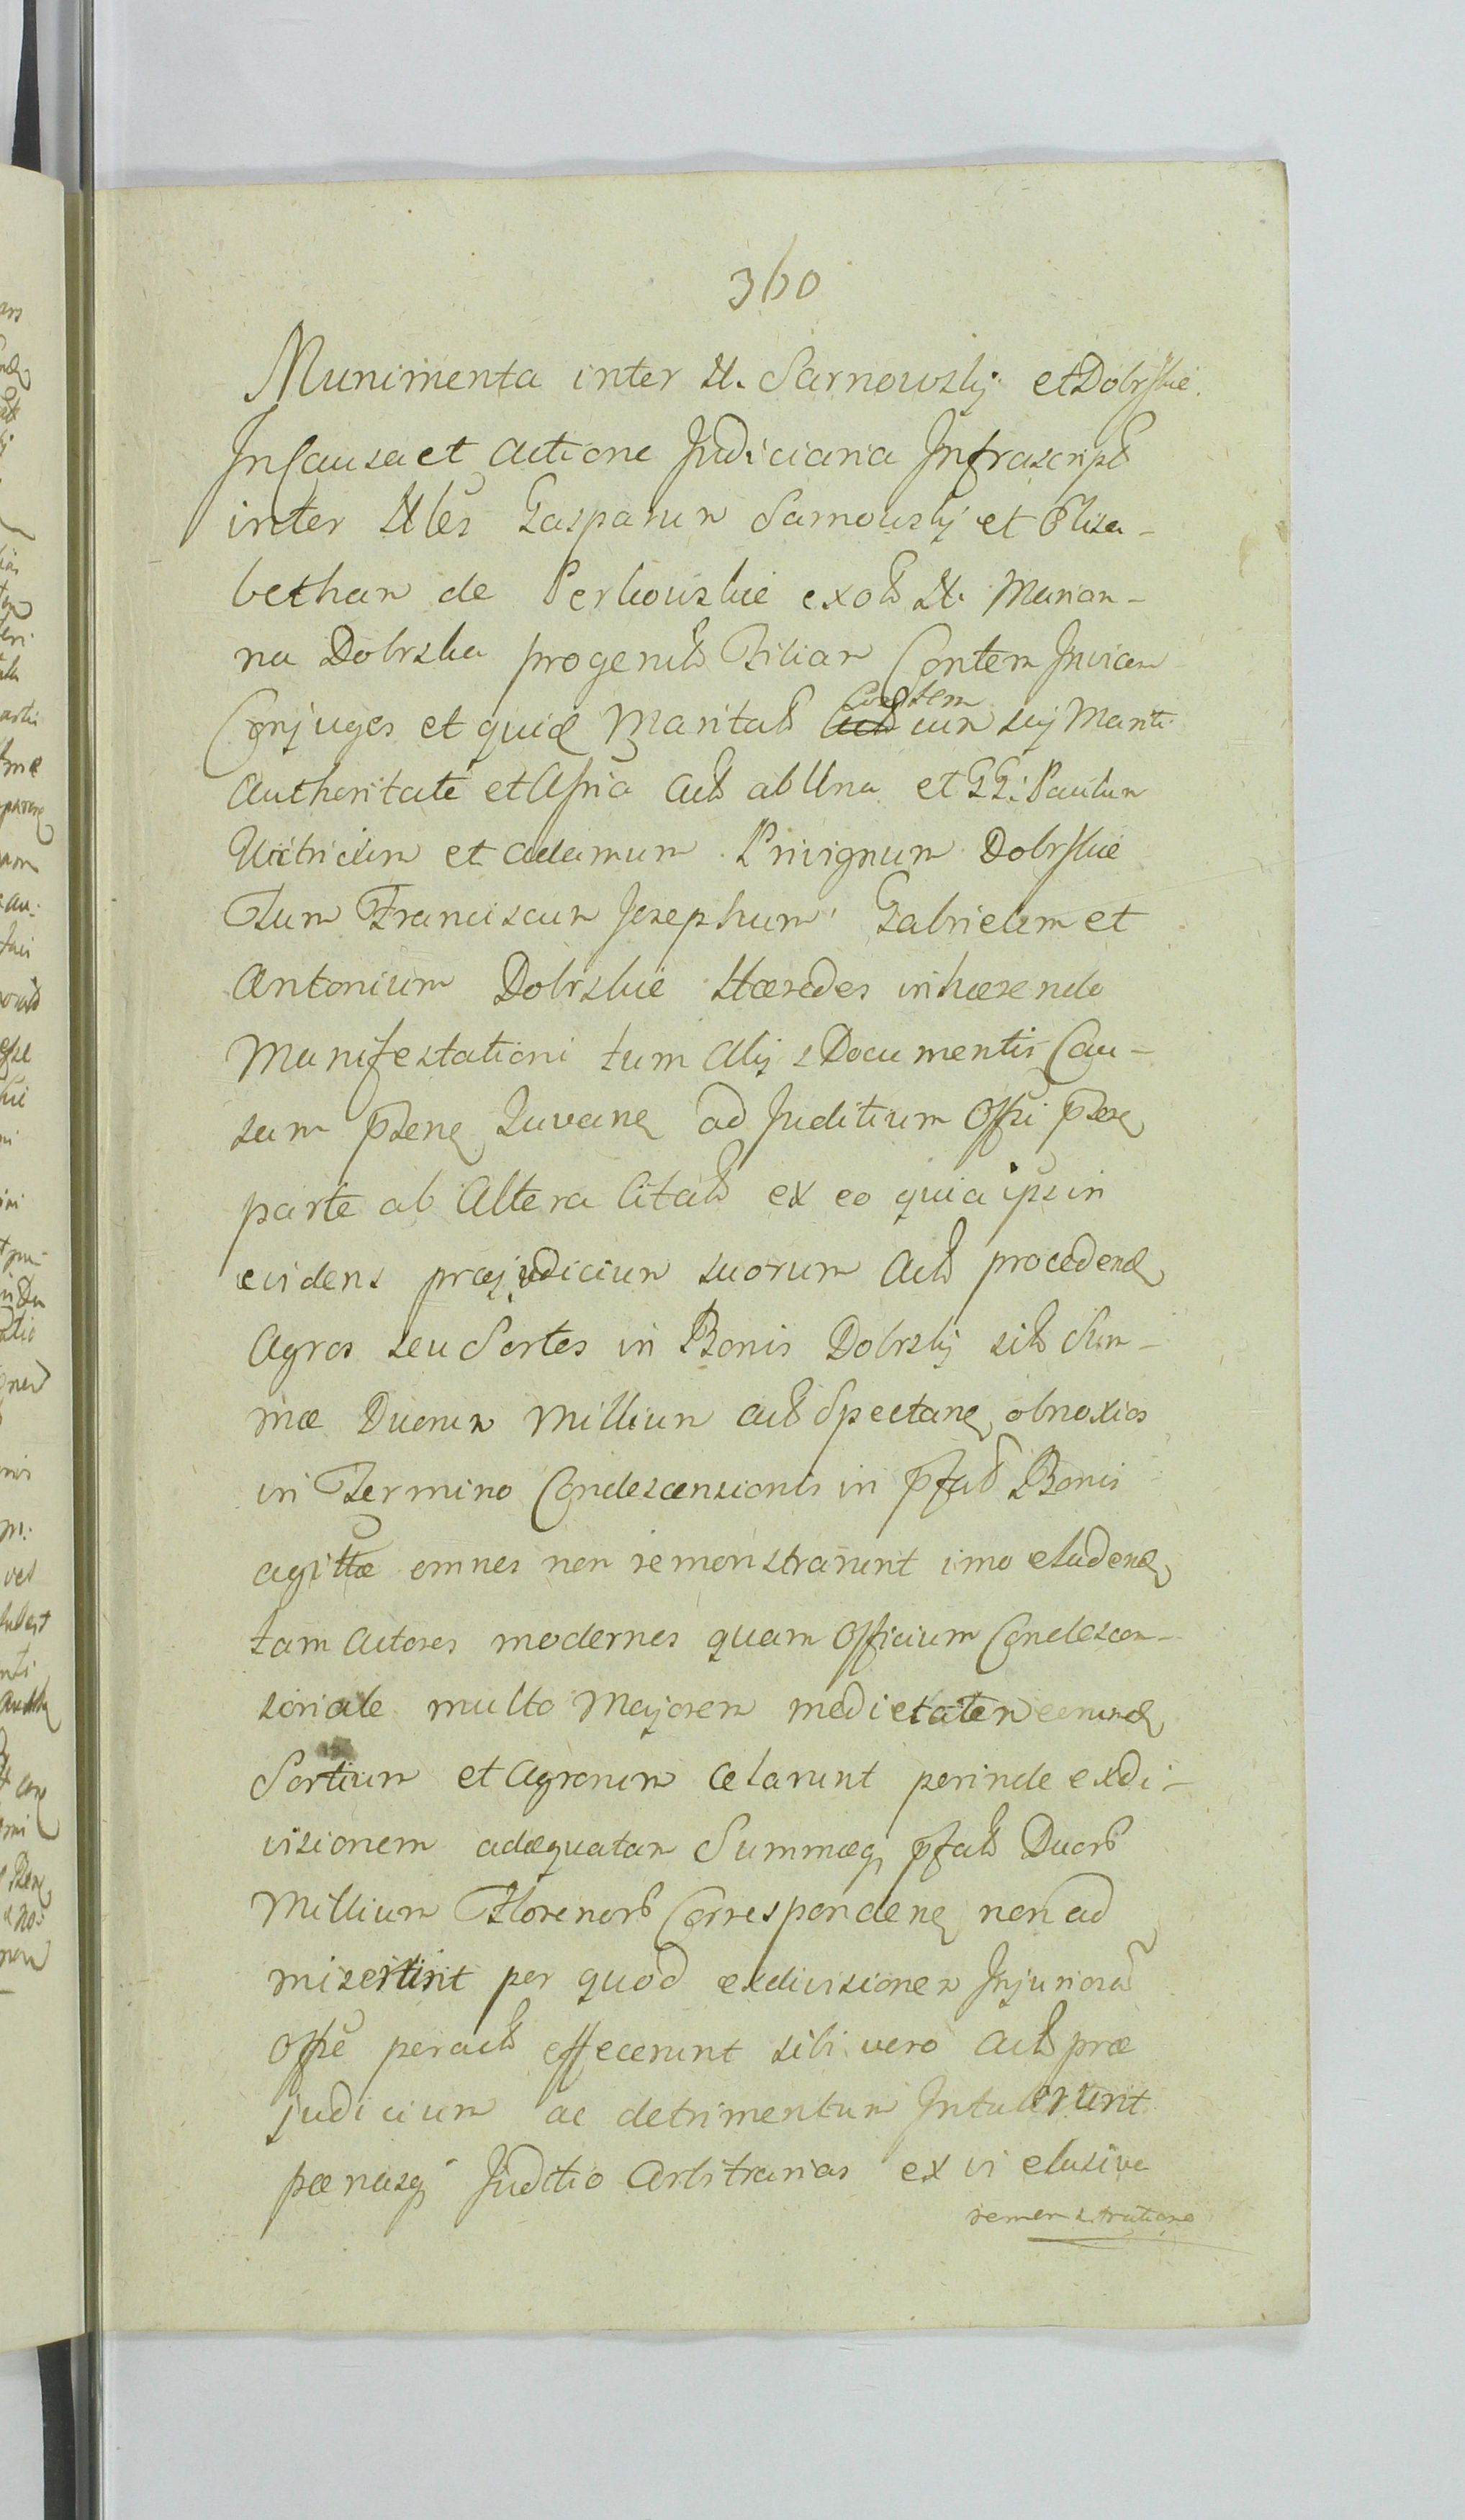 360
Munimenta inter N. Sarnowskj et Dobrskie.
In Causa et Actione Judiciaria Infrascript
inter Nles Gasparum Sarnowskj et Elisa-
betham de Perkowskie ex N. Marian-
na Dobrska Filiam Contem Invicem
Conjuges et quid Marital Coastem cum suj Mariti
Authoritate et Assña Act ab Una et GG: Paulum
Uitricum et Adamum Privignum Dobrskie
Tum Franciscum Josephum Gabrielem et
Antonium Dobrskie Hæredes inhærendo
Manifestationi tum Alijs Documentis Cau-
sam pseñ Juvañ ad Juditium Offi pseñ
parte ab Altera Citat ex eo quia ipsi in
evidens præjudicium suorum Act procedeñ
Agros seu Sortes in Bonis Dobrskj sib Sum-
mæ Duorum Millium act Spectañ obnoxios
in Termino Condescensionis in pfat Bonis
agittæ omnes non remonstrarunt imo eludeñ
tam Actores modernos quam Officium Condescen-
soriale multo Majorem medietatem eorund
Sortium et Agrorum celarunt perinde exdi-
visionem adæquatam Summæq pfat Duor
Millium Florenor Correspondeñ non ad
miserunt per quod exdivisionem Injuriosa
Offe peract effecerunt sibi vero Act præ
judicium ac detrimentum Intulerunt
pænasq Juditio Arbitrarias ex vi elusivæ
remonstratione